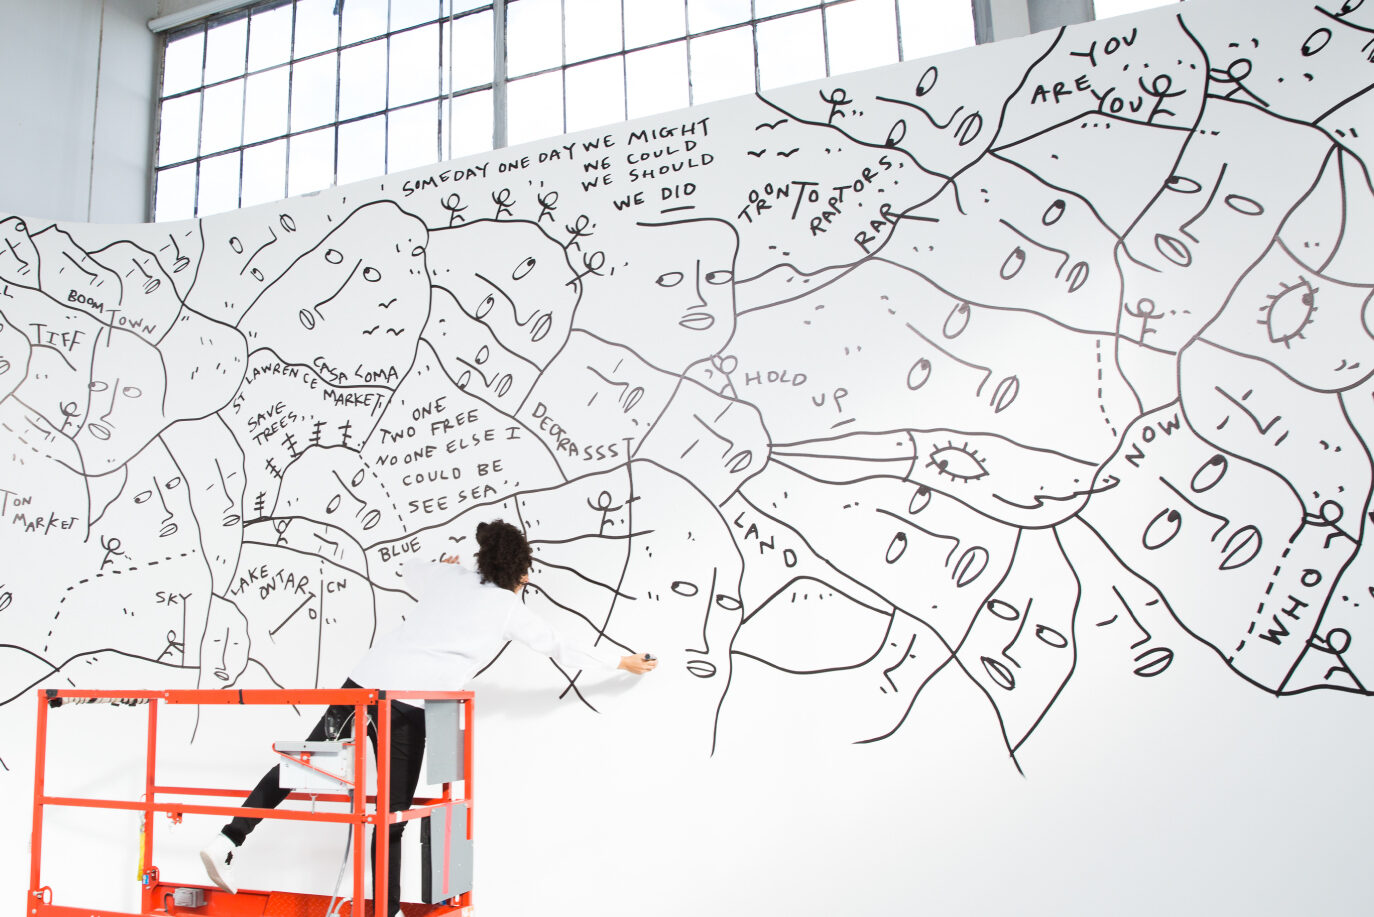 YOU
ARE
YOU
SOMEDAY ONE DAY WE MIGHT
WE COULD
WE SHOULD
WE DID
TORONTO
RAPTORS.
RAP
BOOM TOWN
TIFF
ST LAWRENCE
MARKET
CASA LOMA
SAVE
TREES..
ONE
TWO FREE
NO ONE ELSE I
COULD BE
SEE SEA..
DEGRASSSI
HOLD
UP
NOW
TON
MARKET
BLUE
LAND
LAKE
ONTARIO
CN
SKY
WHO